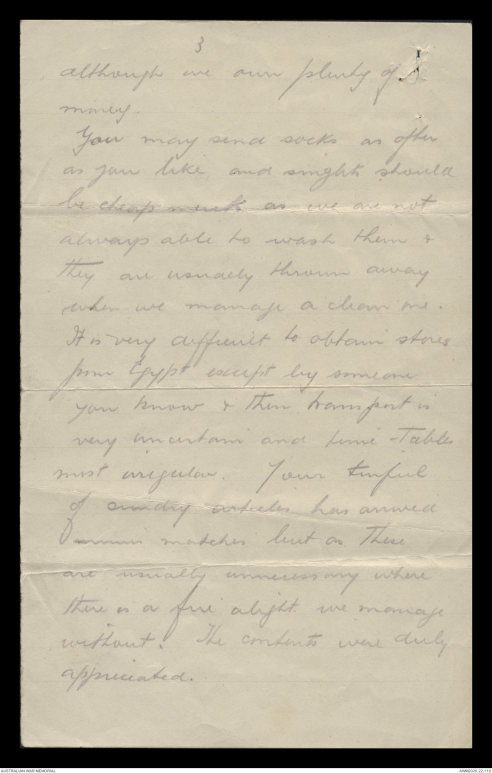 3
although we own plenty of
money.
You may send socks as often
as you like and singlets should
be cheap as we are not
always able to wash them &
they are usually thrown away
when we manage a clean one.
It is very difficult to obtain stores
from Egypt except by someone
you know & then transport is
very uncertain and time-tables
most irregular. Your tinful
of sundry articles has arrived
minus matches but as these
are usually unnecessary where
there is a fire alight we manage
without. The contents were duly
appreciated.
AUSTRALIAN WAR MEMORIAL